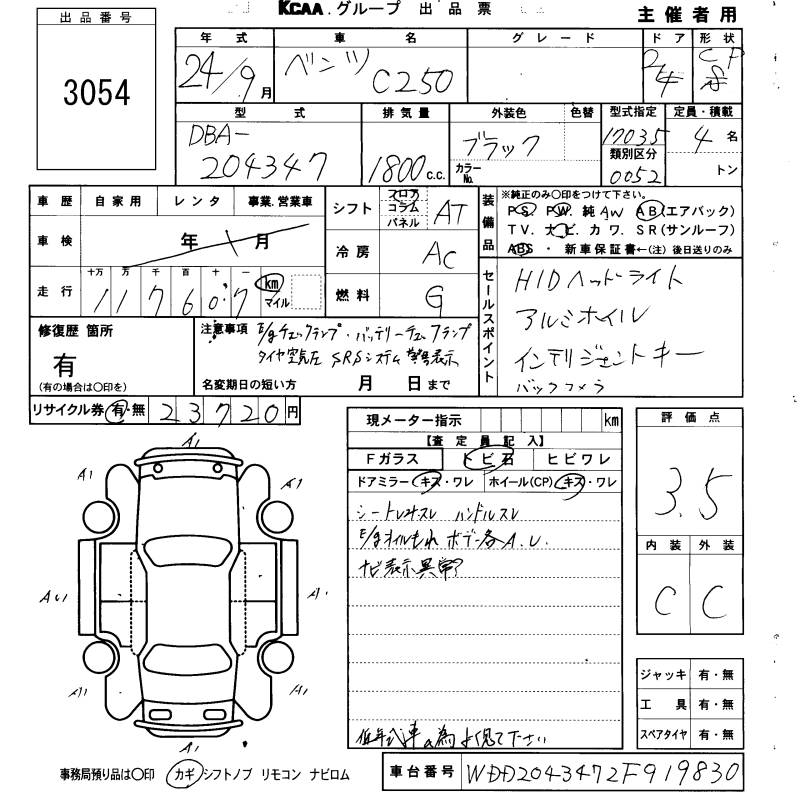 出品番号
3054
KCAA.グループ 出品票
主催者用
年式 車名 グレード ドア 形状
24/9月 ベンツ C250 2/4
型式 排気量 外装色 色替 型式指定 定員・積載
DBA-204347 1800c.c. ブラック カラーNo. 17035 4名
類別区分 0052 トン
車歴 自家用 レンタ 事業.営業車
車検 年 月
走行 十万 万 千 百 十 一
117607 km マイル
シフト フロア コラム パネル AT
冷房 AC
燃料 G
装備品
※純正のみ〇印をつけて下さい。
PS. PW. 純AW AB(エアバック)
TV. ナビ. カワ. SR(サンルーフ)
ABS・新車保証書←(注)後日送りのみ
セールスポイント
HIDヘッドライト
アルミホイル
インテリジェントキー
バックカメラ
修復歴 箇所
有
(有の場合は〇印を)
注意事項 E/gチェックランプ・バッテリーチェックランプ
タイヤ空気圧 SRSシステム 警告表示
名変期日の短い方 月 日まで
リサイクル券 有・無 23720円
現メーター指示 km
【査定員記入】
Fガラス トビ石 ヒビワレ
ドアミラー キズ・ワレ ホイール(CP) キズ・ワレ
シートレザースレ ハンドルスレ
E/gオイルもれ ボデー各A.U.
ナビ表示異常?
低年式車の為よく見て下さい
評価点
3.5
内装 外装
C C
ジャッキ 有・無
工具 有・無
スペアタイヤ 有・無
A1
A1 A1
A1
A1 A1
A1
事務局預り品は〇印 カギ シフトノブ リモコン ナビロム
車台番号 WDD2043472F919830